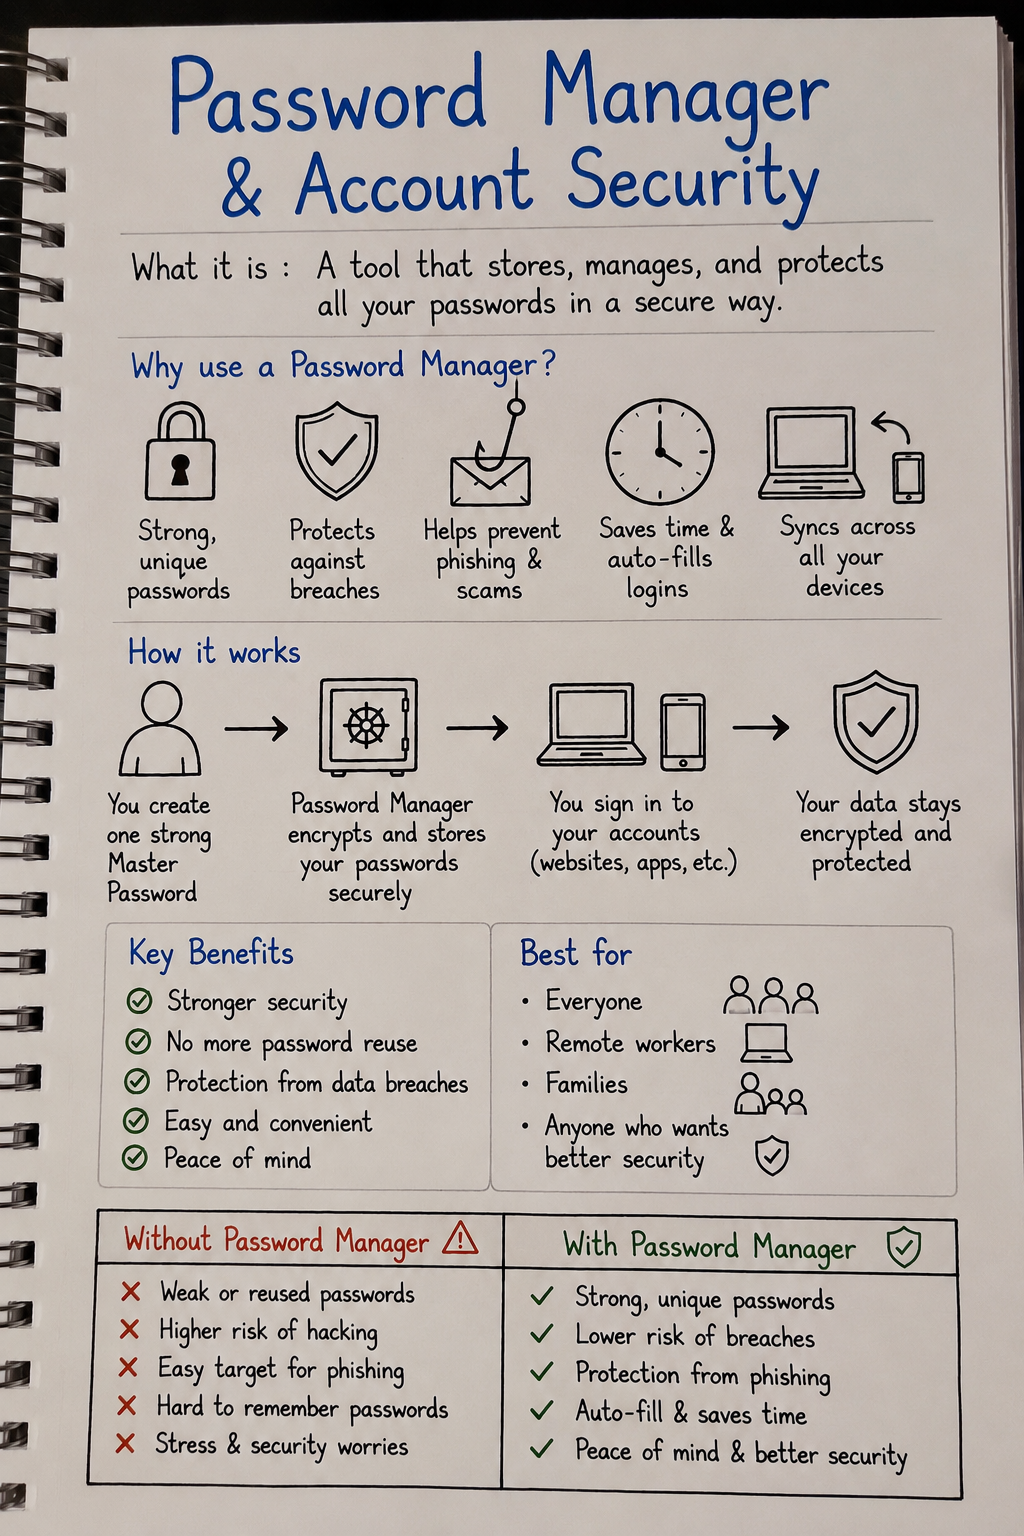 Password Manager
& Account Security
What it is : A tool that stores, manages, and protects
all your passwords in a secure way.
Why use a Password Manager?
Strong,
unique
passwords
Protects
against
breaches
Helps prevent
phishing &
scams
Saves time &
auto-fills
logins
Syncs across
all your
devices
How it works
You create
one strong
Master
Password
Password Manager
encrypts and stores
your passwords
securely
You sign in to
your accounts
(websites, apps, etc.)
Your data stays
encrypted and
protected
Key Benefits
Stronger security
No more password reuse
Protection from data breaches
Easy and convenient
Peace of mind
Best for
• Everyone
• Remote workers
• Families
• Anyone who wants
better security
Without Password Manager
Weak or reused passwords
Higher risk of hacking
Easy target for phishing
Hard to remember passwords
Stress & security worries
With Password Manager
Strong, unique passwords
Lower risk of breaches
Protection from phishing
Auto-fill & saves time
Peace of mind & better security